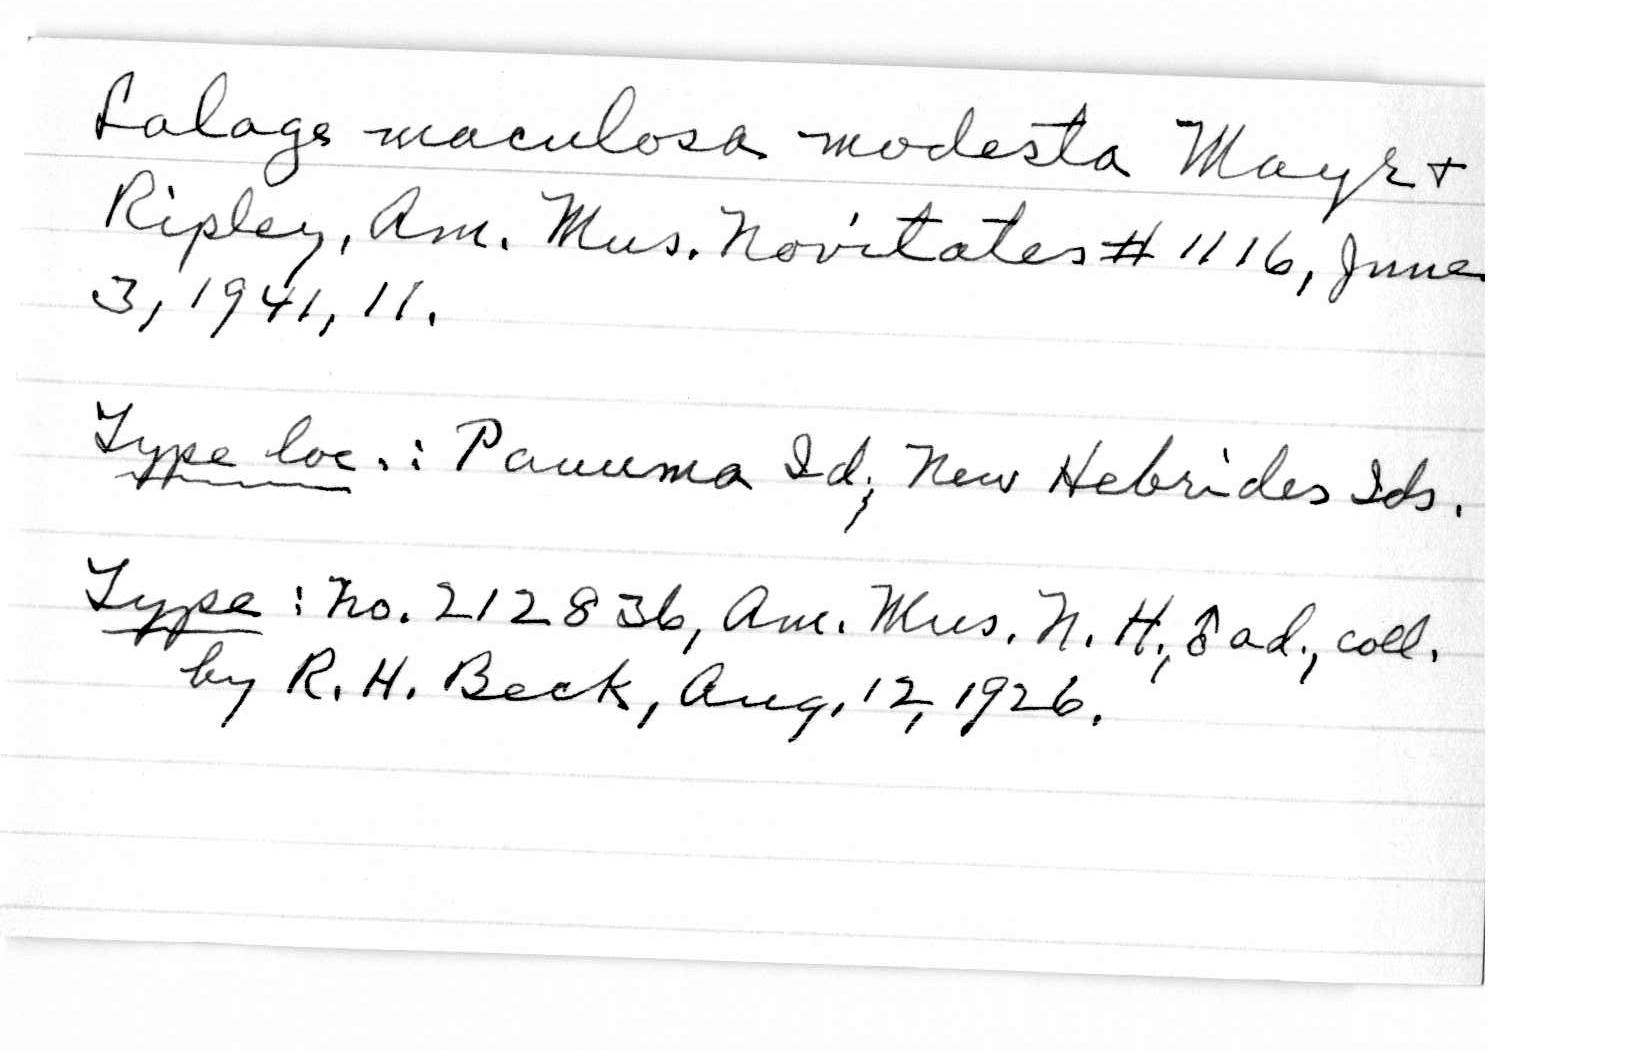 Lalage maculosa modesta Mayr +
Ripley, Am. Mus. Novitates # 1116, June
3, 1941, 11.
Type loc.: Pauuma Id; New Hebrides Ids.
Type : No. 212836, Am. Mus. N. H., ♂ ad., coll.
by R. H. Beck, Aug. 12, 1926.